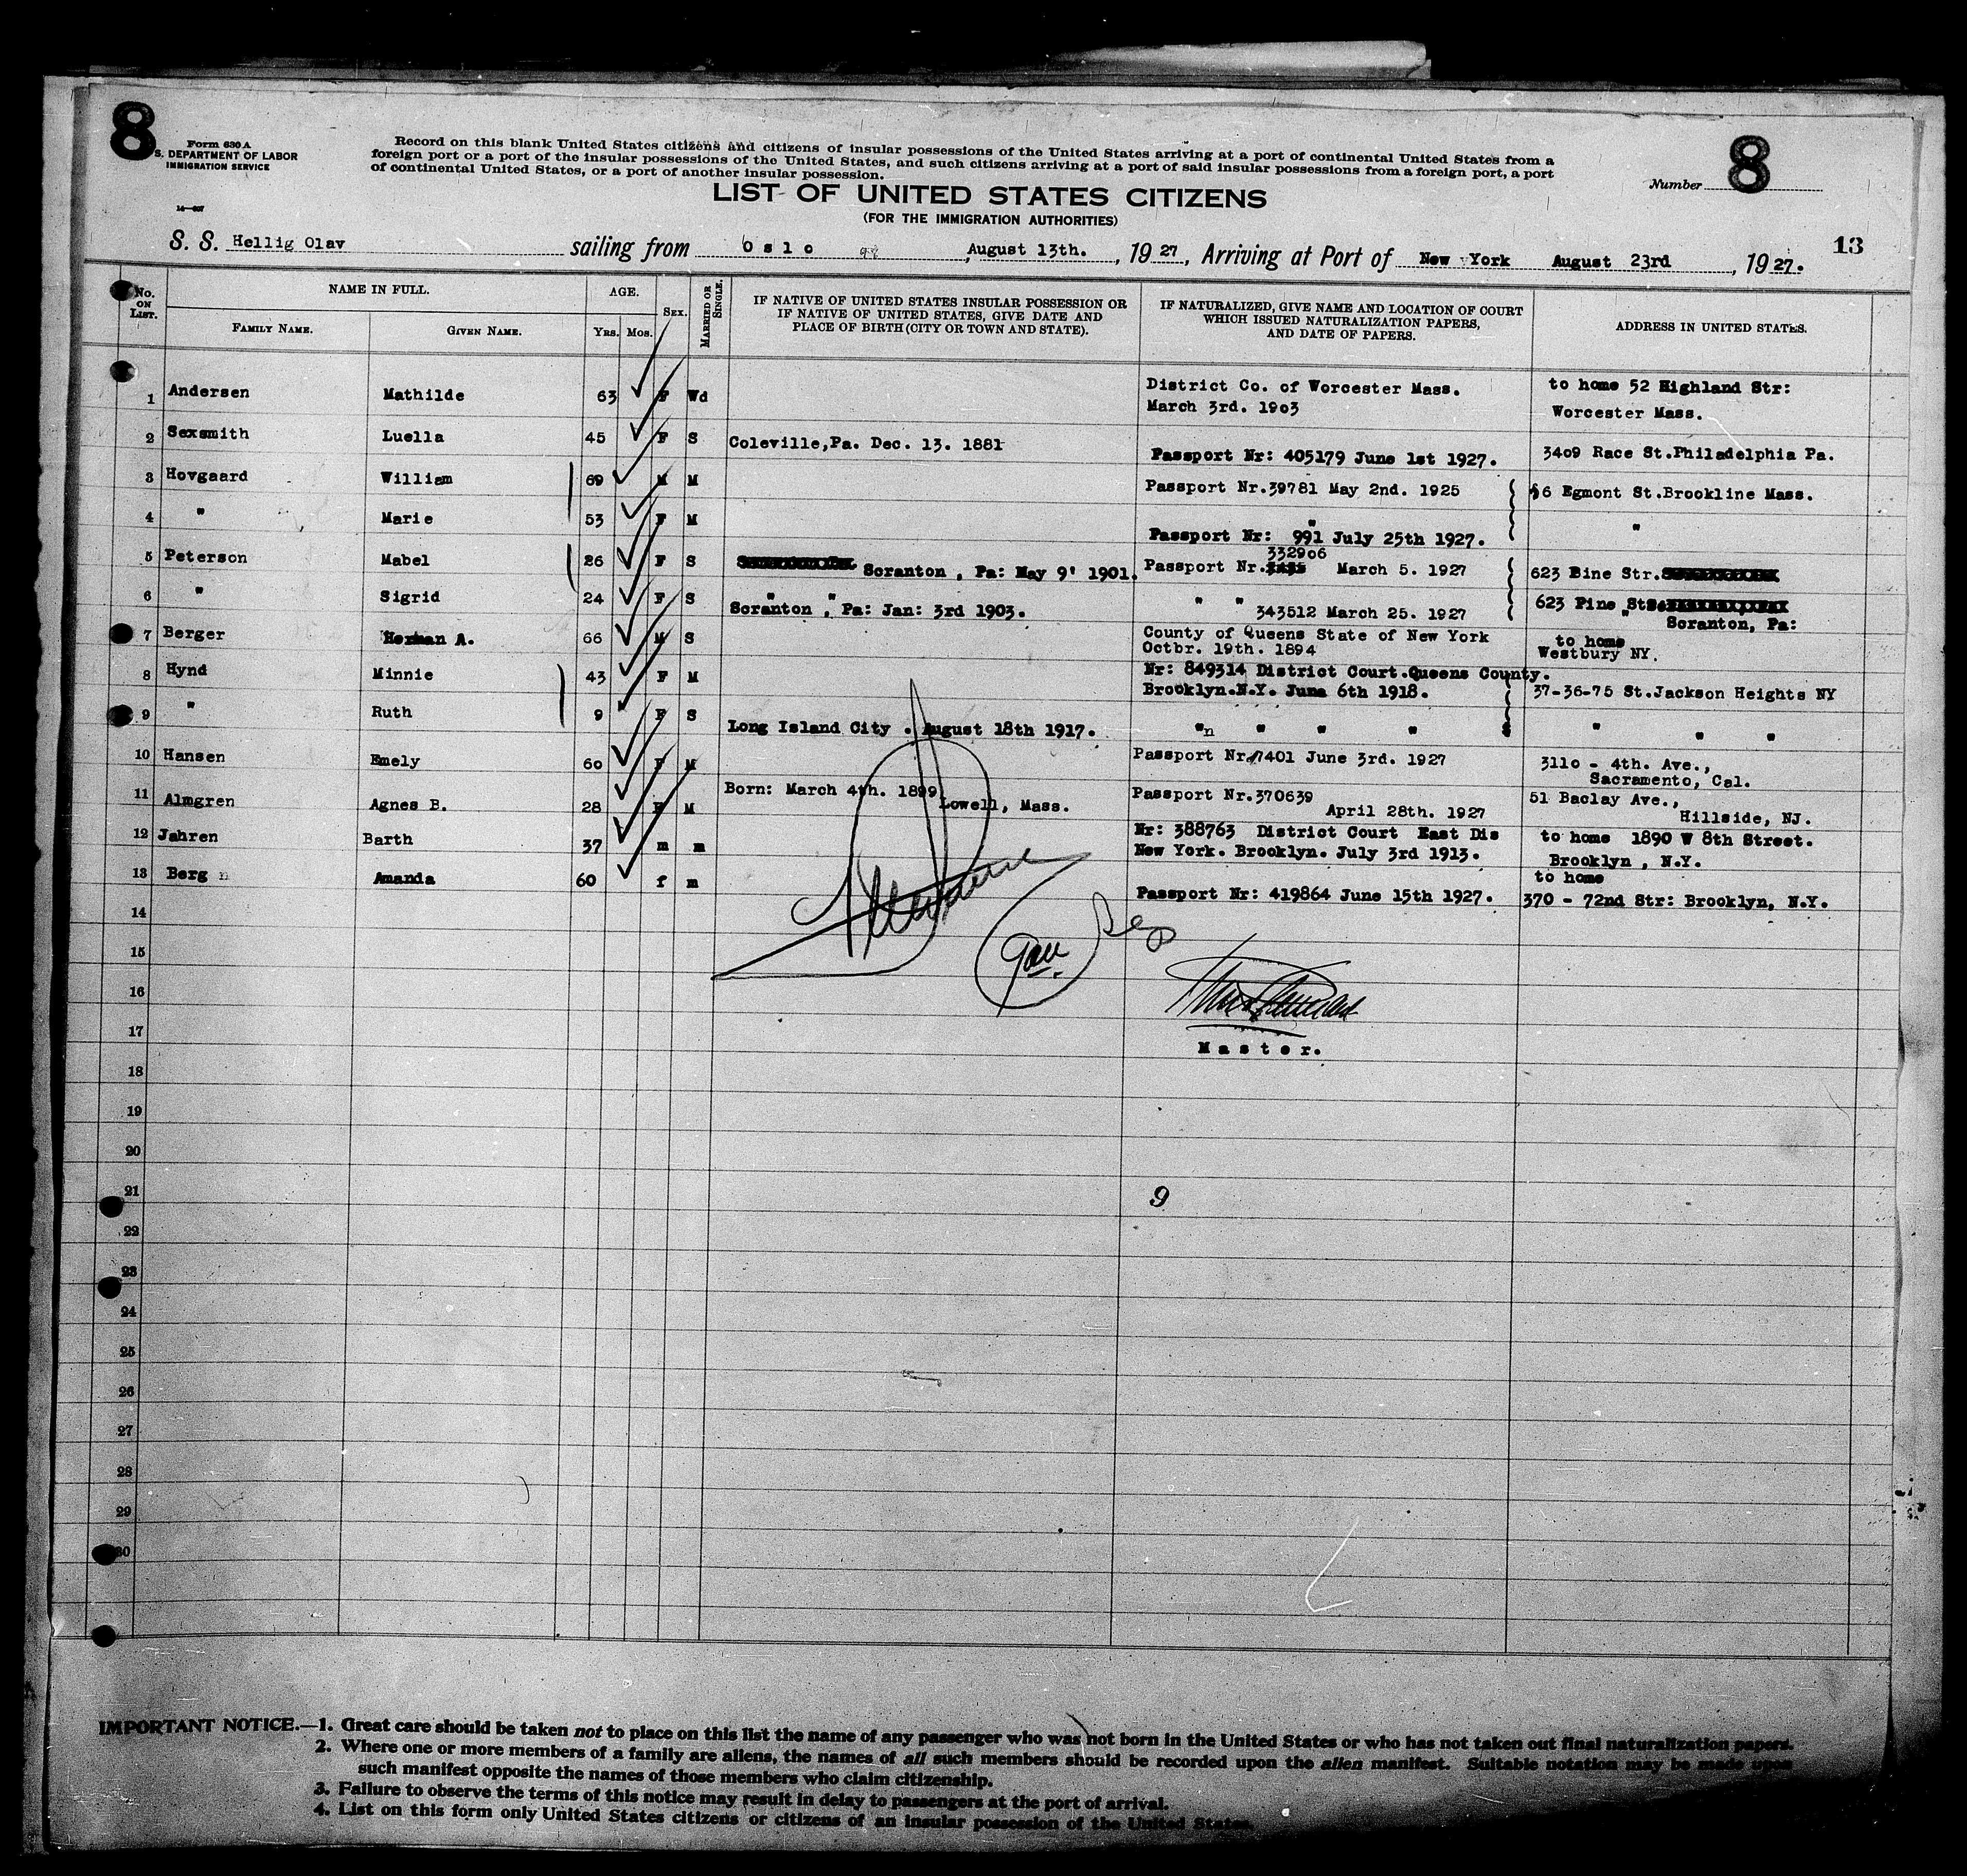 8
8
Form 630 A
S. DEPARTMENT OF LABOR
IMMIGRATION SERVICE
14—687
Record on this blank United States citizens and citizens of insular possessions of the United States arriving at a port of continental United States from a
foreign port or a port of the insular possessions of the United States, and such citizens arriving at a port of said insular possessions from a foreign port, a port
of continental United States, or a port of another insular possession.
Number
LIST OF UNITED STATES CITIZENS
(FOR THE IMMIGRATION AUTHORITIES)
13
S. S. Hellig Olav sailing from Oslo , August 13th. , 1927, Arriving at Port of New York August 23rd , 1927.
No. ON LIST. NAME IN FULL. AGE. SEX. MARRIED OR SINGLE. IF NATIVE OF UNITED STATES INSULAR POSSESSION OR IF NATIVE OF UNITED STATES, GIVE DATE AND PLACE OF BIRTH (CITY OR TOWN AND STATE). IF NATURALIZED, GIVE NAME AND LOCATION OF COURT WHICH ISSUED NATURALIZATION PAPERS, AND DATE OF PAPERS. ADDRESS IN UNITED STATES.
FAMILY NAME. GIVEN NAME. YRS. MOS.
1 Andersen Mathilde 63 F Wd District Co. of Worcester Mass. March 3rd. 1903 to home 52 Highland Str: Worcester Mass.
2 Sexsmith Luella 45 F S Coleville,Pa. Dec. 13. 1881 Passport Nr: 405179 June 1st 1927. 3409 Race St.Philadelphia Pa.
3 Hovgaard William 69 M M Passport Nr.39781 May 2nd. 1925 6 Egmont St.Brookline Mass.
4 " Marie 53 F M " Passport Nr: 991 July 25th 1927. "
5 Peterson Mabel 26 F S Scranton , Pa: May 9' 1901. Passport Nr. 332906 March 5. 1927 623 Pine Str.
6 " Sigrid 24 F S " " Scranton , Pa: Jan: 3rd 1903. " " 343512 March 25. 1927 623 Pine St " Scranton, Pa:
7 Berger Herman A. 66 M S County of Queens State of New York Octbr. 19th. 1894 to home Westbury NY.
8 Hynd Minnie 43 F M Nr: 849314 District Court.Queens County. Brooklyn.N.Y. June 6th 1918. 37-36-75 St.Jackson Heights NY
9 " Ruth 9 F S Long Island City . August 18th 1917. "n " " " " " "
10 Hansen Emely 60 F M Passport Nr.7401 June 3rd. 1927 3110 - 4th. Ave., Sacramento, Cal.
11 Almgren Agnes B. 28 F M Born: March 4th. 1899 Lowell, Mass. Passport Nr.370639 April 28th. 1927 51 Baclay Ave., Hillside, NJ.
12 Jahren Barth 37 m m Nr: 388763 District Court East Dis New York. Brooklyn. July 3rd 1913. to home 1890 W 8th Street. Brooklyn , N.Y.
13 Berg Amanda 60 f m Passport Nr: 419864 June 15th 1927. to home 370 - 72nd Str: Brooklyn, N.Y.
14
15
16
17
Master.
18
19
20
21
9
22
23
24
25
26
27
28
29
30
IMPORTANT NOTICE.—1. Great care should be taken not to place on this list the name of any passenger who was not born in the United States or who has not taken out final naturalization papers.
2. Where one or more members of a family are aliens, the names of all such members should be recorded upon the alien manifest. Suitable notation may be made upon
such manifest opposite the names of those members who claim citizenship.
3. Failure to observe the terms of this notice may result in delay to passengers at the port of arrival.
4. List on this form only United States citizens or citizens of an insular possession of the United States.